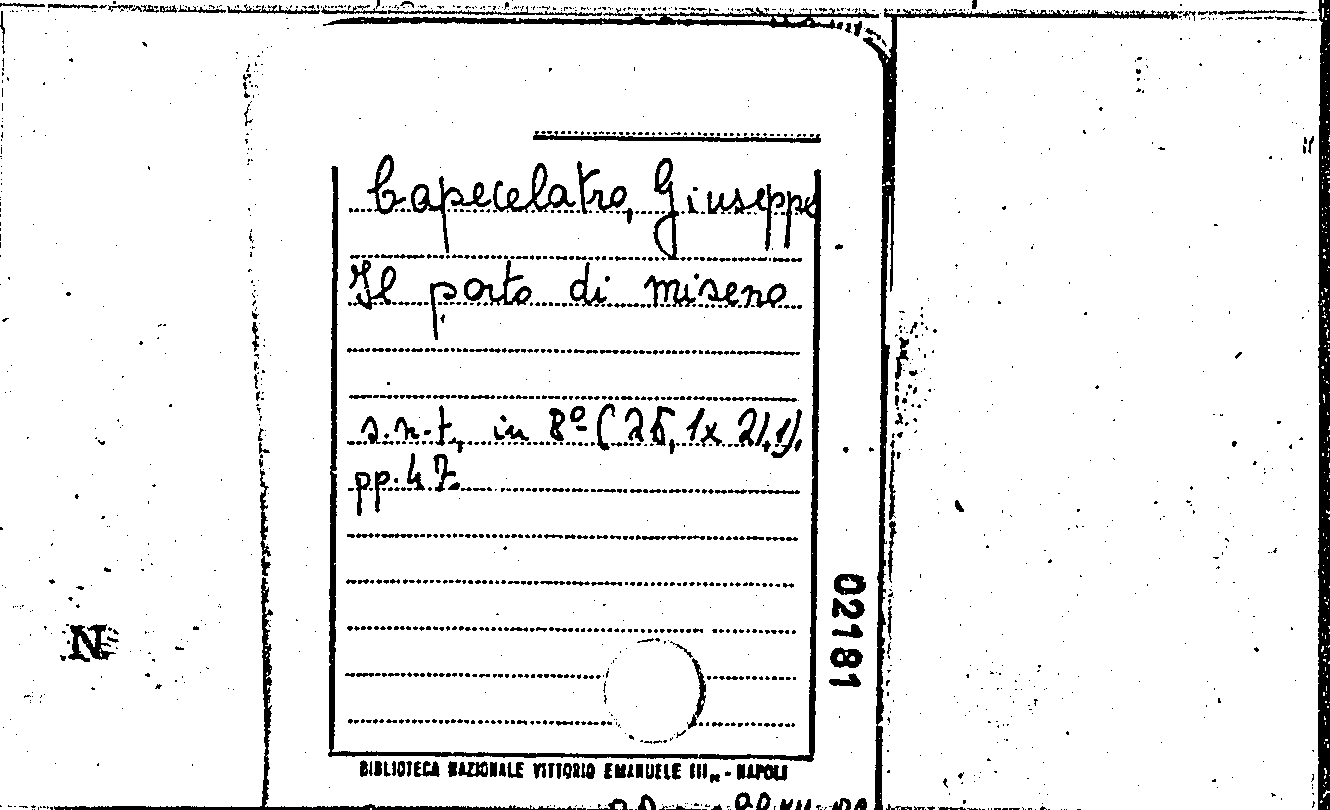 Capecelatro, Giuseppe
Il porto di miseno
s.n.t., in 8º (28,1x 21,1),
pp. 47.
02181
N
BIBLIOTECA NAZIONALE VITTORIO EMANUELE III - NAPOLI